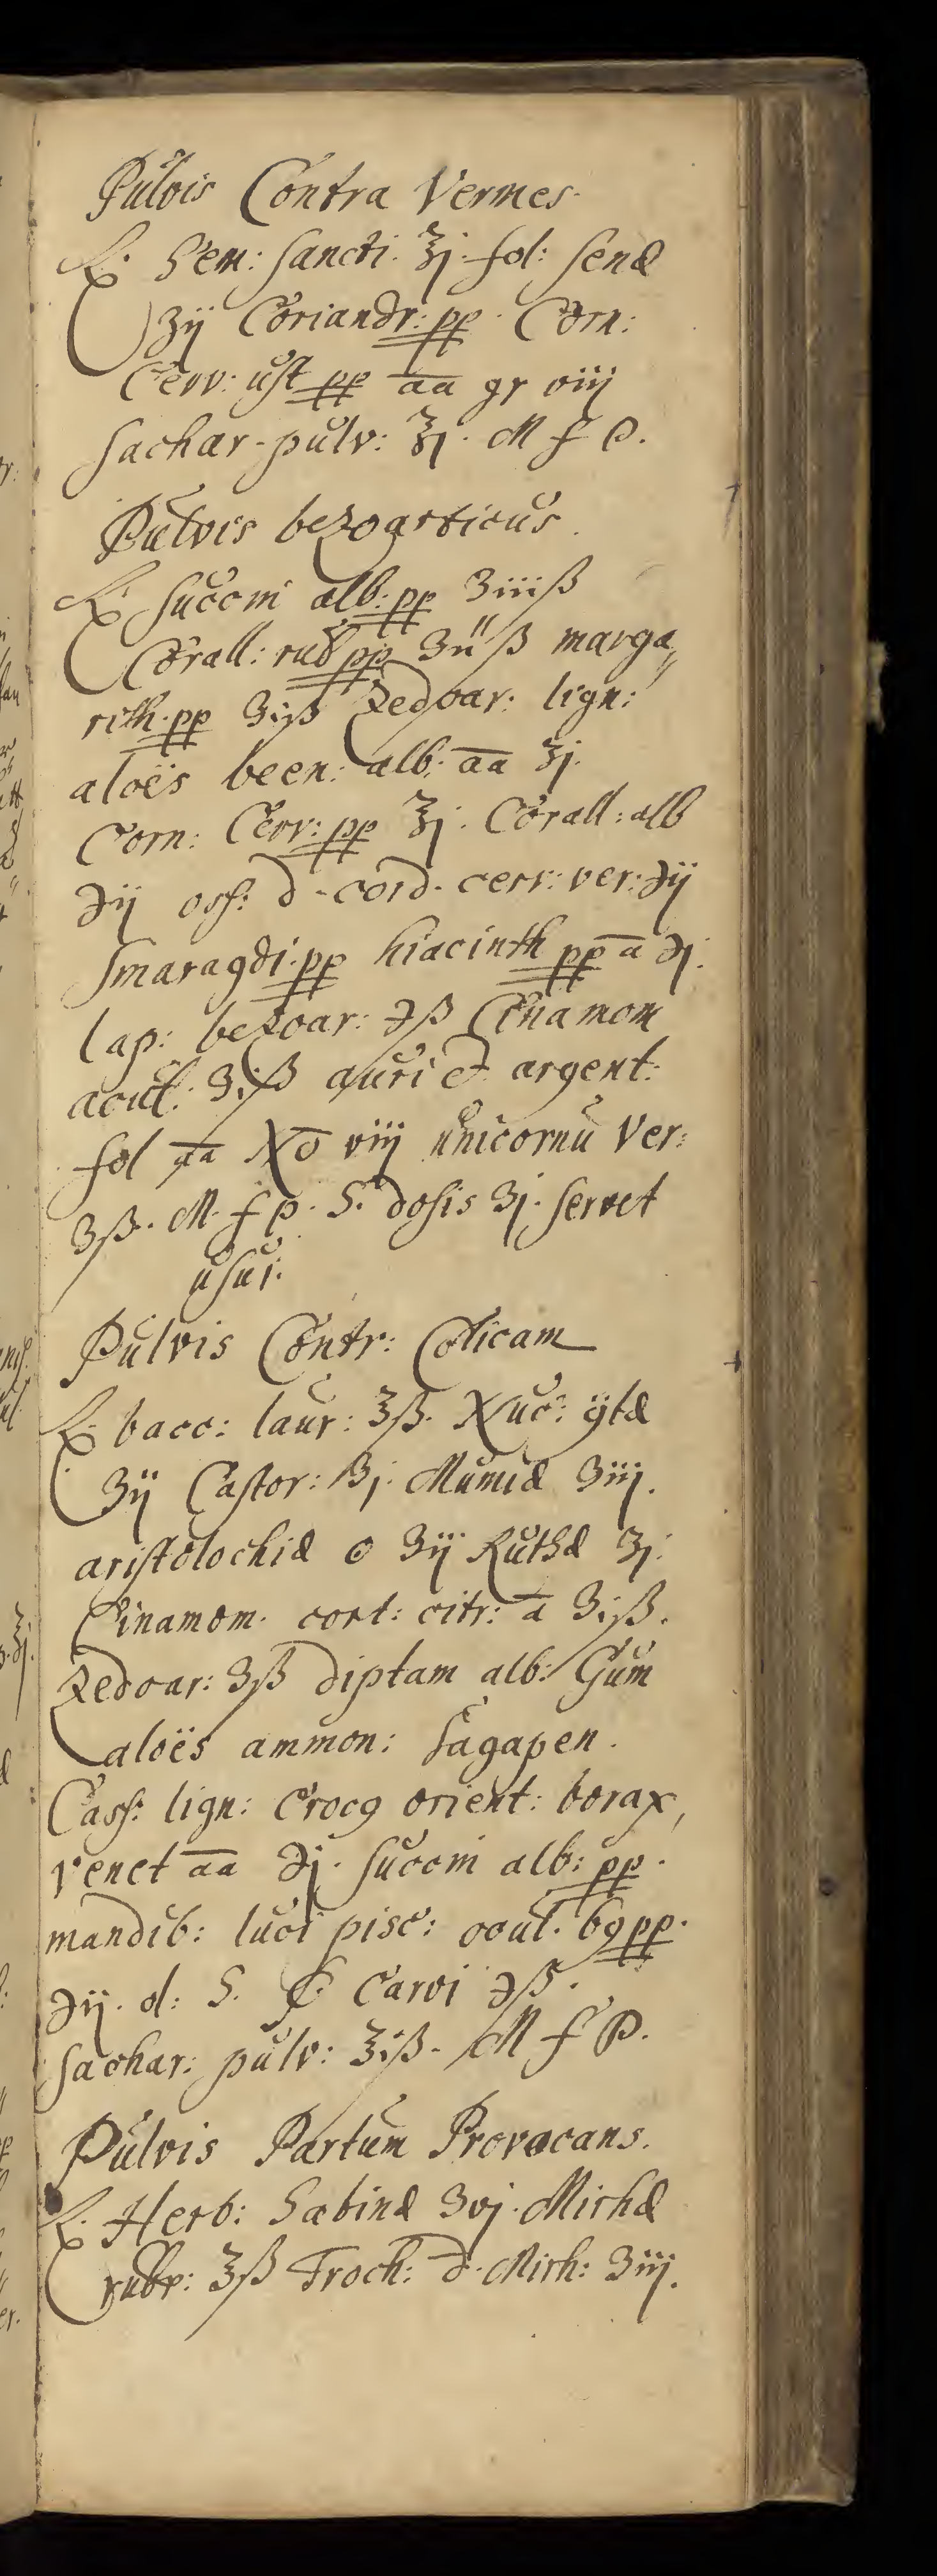 Pulvis Contra Vermes
℞. Sem: sancti. ℥j. fol: senæ
ʒij Coriandr: pp. Corn:
Cerv: ust pp āā gr viij
Sachar pulv: ℥j. M f P.
Pulvis bezoarticus.
℞. Succini alb: pp ʒiiiß
Corall: rub pp ʒiiß marga„
rith. pp ʒiß Zedoar: lign:
aloës been: alb: āā ʒj.
Corn: Cerv: pp ℥j. Corall: alb
℈ij oss: d. cord. cerv: ver: ℈ij
Smaragdi. pp hiacinth pp ā ℈j.
lap: bezoar: ℈ß Cinamom
acut: ʒiß auri et argent:
fol āā No viij unicornu Ver:
ʒß. M. f P. S. dosis ʒj. servet
usui.
Pulvis Contr: Colicam
℞. bacc: laur: ℥ß. Nuc: ÿtæ
ʒij Castor: ʒj. Mumiæ ʒiij.
aristolochiæ o ʒij Ruthæ ʒj.
Cinamom. cort: citr: ā ʒiß.
Zedoar: ʒß diptam alb: Gum
aloës ammon: Sagapen.
Cass: lign: Croc9 orient: borax,
venet āā ℈j. Succini alb: pp.
mandib: luci pisc: ocul. 69 pp.
℈ij. d: S. Carvi ℈ß.
Sachar: pulv: ℥iß. M f P.
Pulvis Partum Provocans.
℞. Herb: Sabinæ ʒvj. Mirhæ
rubr: ℥ß Troch: d. Mirh: ʒiij.